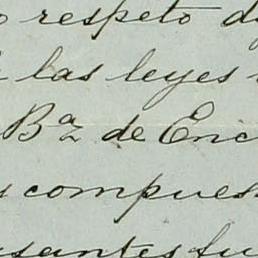 o respeto d
las leyes
Bª de Enc
compues
santes fu